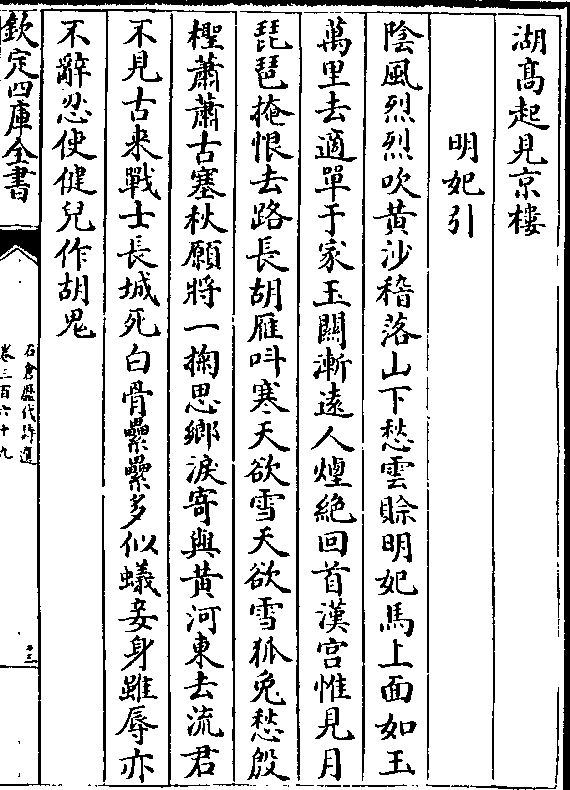 湖髙起見京樓
明妃引
陰風烈烈吹黄沙稽落山下愁雲賖明妃馬上面如玉
萬里去適單于家玉闗漸逺人煙絶回首漢宫惟見月
琵琶掩恨去路長胡雁呌寒天欲雪天欲雪狐兔愁殷
檉蕭蕭古塞秋願將一掬思鄉淚寄與黄河東去流君
不見古来戰士長城死白骨纍纍多似蟻妾身雖辱亦
不辭忍使健兒作胡鬼
欽定四庫全書
石倉歴代詩選
卷三百六十九